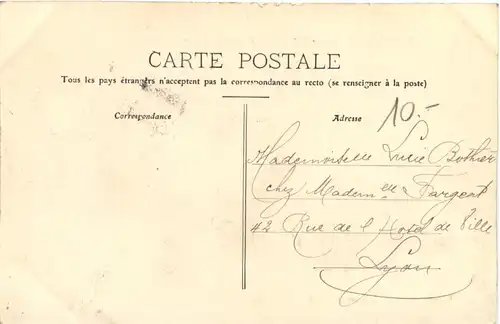 CARTE POSTALE
Tous les pays étrangers n'acceptent pas la correspondance au recto (se renseigner à la poste)
Correspondance
Adresse
10.-
Mademoiselle Lucie Bothier
chez Madem elle Fargent
42 Rue de l'Hotel de Ville
Lyon